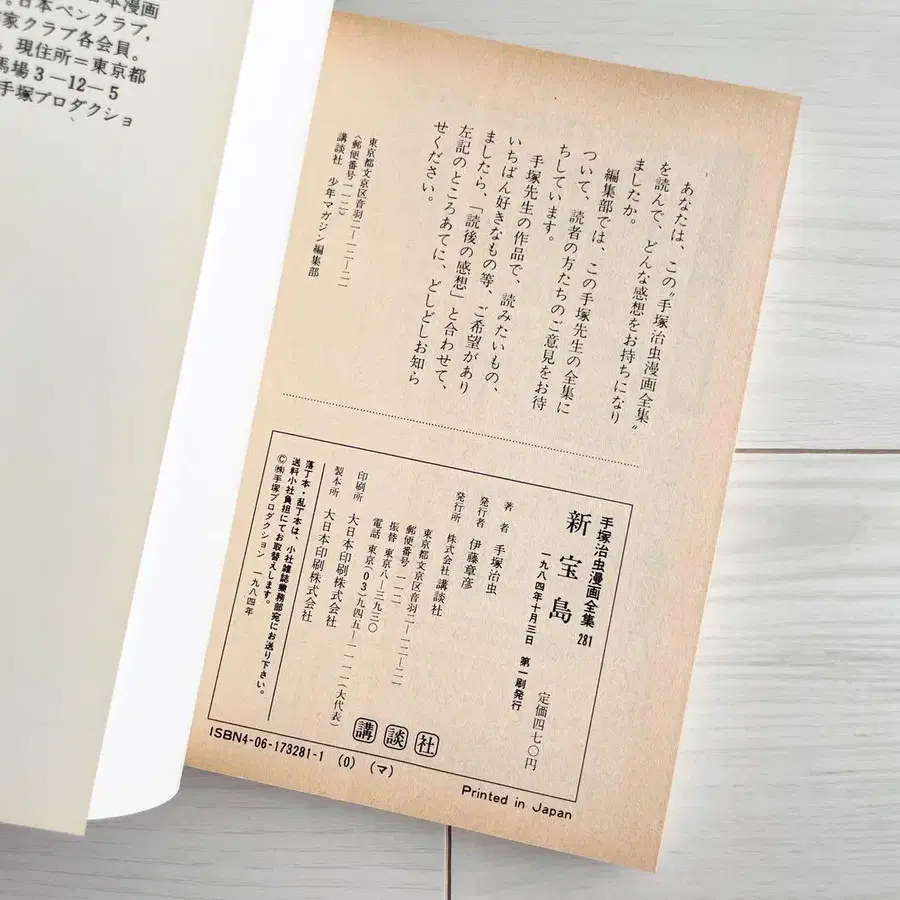 本漫画
。日本ペンクラブ,
家クラブ各会員。
。現住所＝東京都
馬場3−12−5
手塚プロダクショ
、
あなたは、この〝手塚治虫漫画全集〟
を読んで、どんな感想をお持ちになり
ましたか。
編集部では、この手塚先生の全集に
ついて、読者の方たちのご意見をお待
ちしています。
手塚先生の作品で、読みたいもの、
いちばん好きなもの等、ご希望があり
ましたら、「読後の感想」と合わせて、
左記のところあてに、どしどしお知ら
せください。
東京都文京区音羽二―一二―二一
〈郵便番号一一二〉
講談社　少年マガジン編集部
手塚治虫漫画全集 281
新宝島
一九八四年十月三日　第一刷発行
定価四七〇円
著　者　手塚治虫
発行者　伊藤章彦
発行所　株式会社 講談社
東京都文京区音羽二―一二―二一
郵便番号　一一二
振替　東京八―三九三〇
電話　東京(03)九四五―一一一一(大代表)
印刷所　大日本印刷株式会社
製本所　大日本印刷株式会社
落丁本・乱丁本は、小社雑誌業務部宛にお送り下さい。
送料小社負担にてお取替えします。
©㈱手塚プロダクション　一九八四年
講談社
ISBN4-06-173281-1 (0) (マ)
Printed in Japan